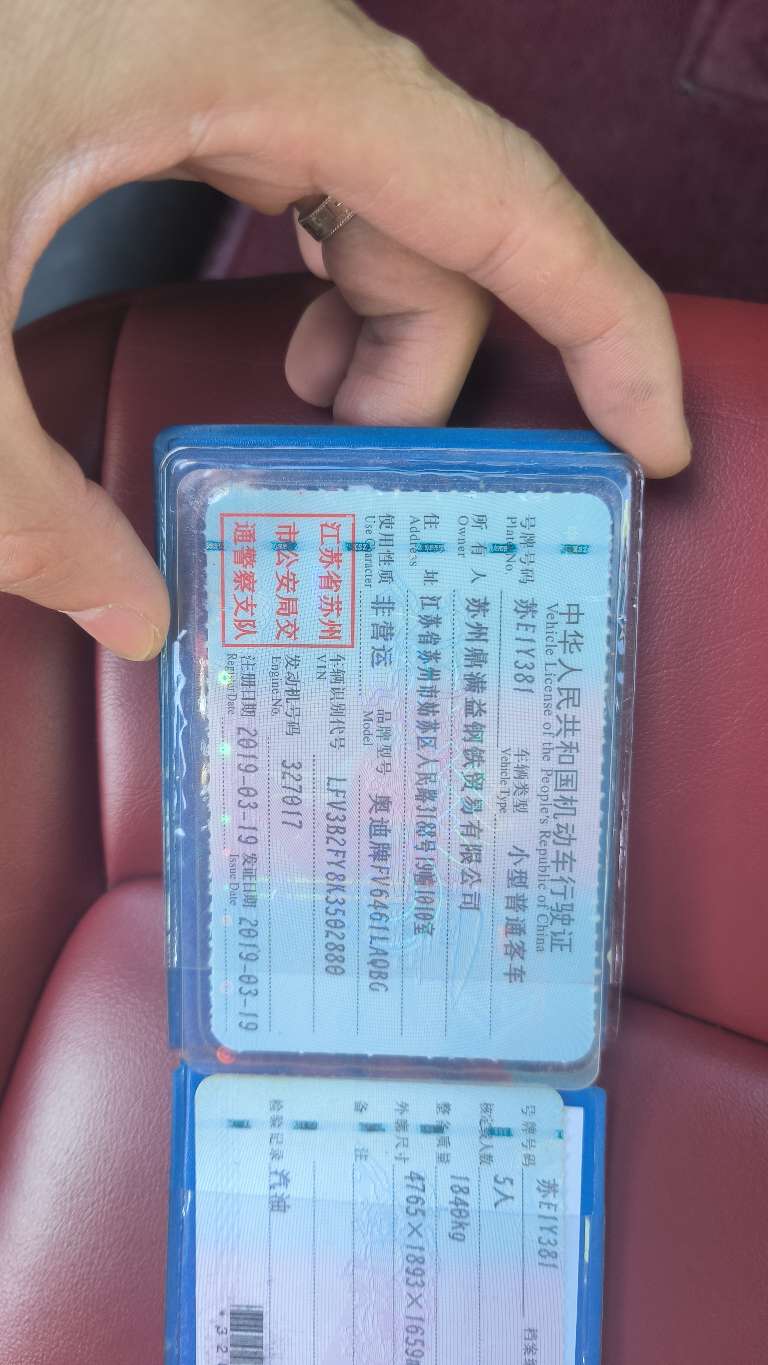 中华人民共和国机动车行驶证
Vehicle License of the People's Republic of China
号牌号码 苏E1Y381 车辆类型 小型普通客车
Plate No. Vehicle Type
所有人 苏州鼎满益钢铁贸易有限公司
Owner
住址 江苏省苏州市姑苏区人民路3188号19幢1010室
Address
使用性质 非营运 品牌型号 奥迪牌FV6461LAQBG
Use Character Model
江苏省苏州
市公安局交
通警察支队
车辆识别代号 LFV3B2FY8K3502880
VIN
发动机号码 327017
Engine No.
注册日期 2019-03-19 发证日期 2019-03-19
Register Date Issue Date
号牌号码 苏E1Y381 档案
核定载人数 5人
整备质量 1840kg
外廓尺寸 4765×1893×1659
备注
检验记录 汽油
*32